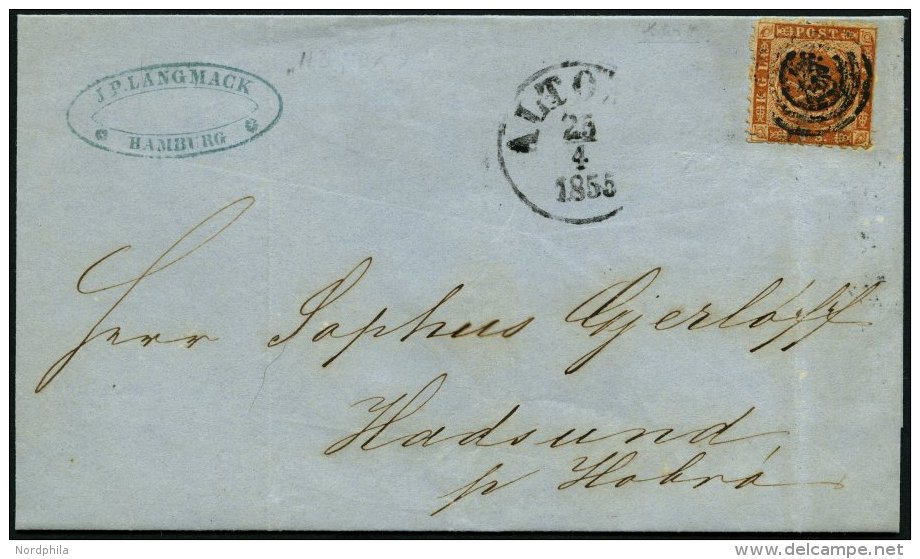 J.P. LANGMACK
HAMBURG
ALTO
25
4
1855
POST
K G L
Herr Sophus Gjerløff
Hadsund
pr Hobro
Nordphila
delcampe.net